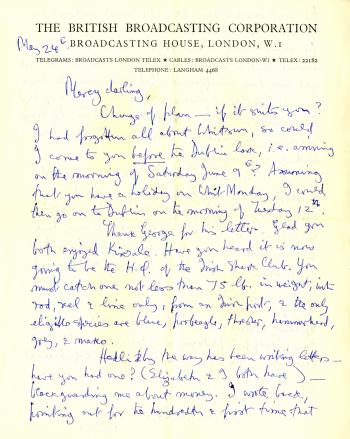 THE BRITISH BROADCASTING CORPORATION
BROADCASTING HOUSE, LONDON, W.1
TELEGRAMS: BROADCASTS LONDON TELEX ★ CABLES: BROADCASTS LONDON-W1 ★ TELEX: 22182
TELEPHONE: LANGHAM 4468
May 24th
Mercy darling,
Change of plan — if it suits you?
I had forgotten all about Whitsun, so could
I come to you before the Dublin lark, i.e. arriving
on the morning of Saturday June 9th? Assuming
that you have a holiday on Whit Monday, I could
then go on to Dublin on the morning of Tuesday 12th.
Thank George for his letter. Glad you
both enjoyed Kinsale. Have you heard it is now
going to be the H.Q. of the Irish Shark Club. You
must catch one not less than 75 lb. in weight, with
rod, reel & line only, from an Irish port, & the only
eligible species are blues, porbeagle, thresher, hammerhead,
grey, & mako.
Hedli by the way has been writing letters —
have you had one? (Elizabeth & I both have) —
blackguarding me about money. I wrote back,
pointing out for the hundredth & first time that